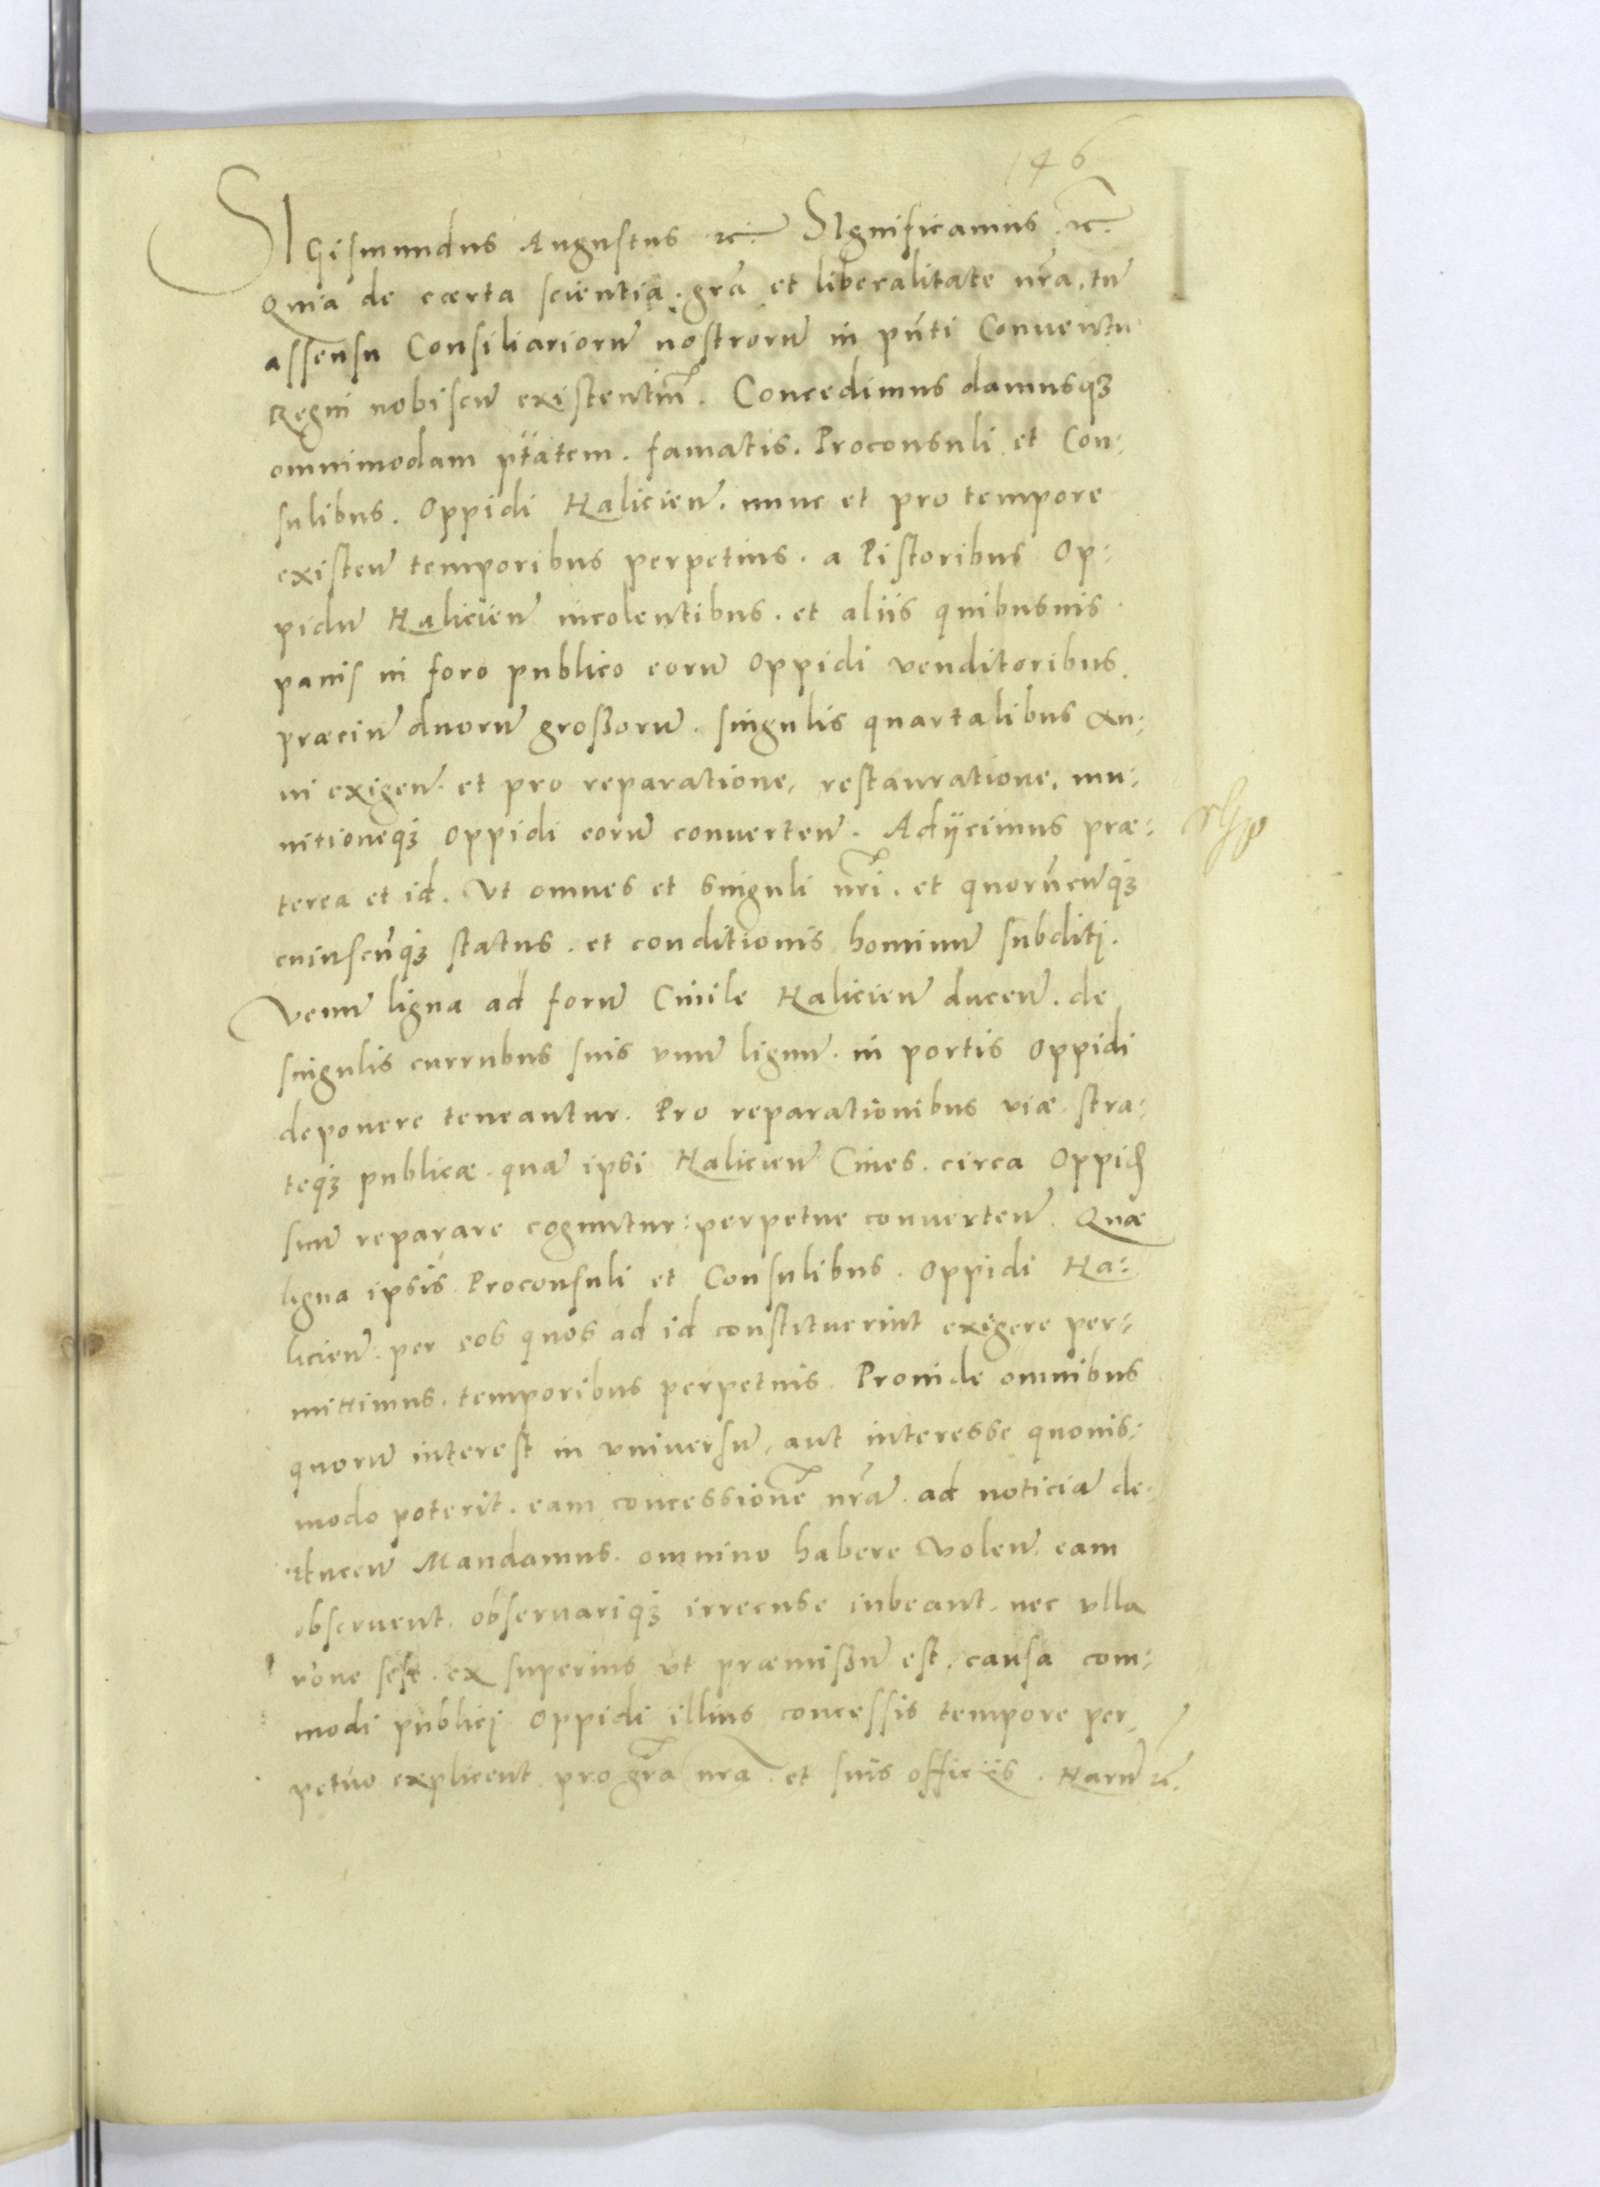 146
SIGismundus Augustus etc. SIgnificamus. etc.
Quia de caerta scientia. gr̃a et liberalitate nr̃a, tũ
assensu Consiliariorũ nostrorũ in pñti Conventu
Regni nobiscũ existentiũ. Concedimus damusq3
omnimodam ptãtem. famatis. Proconsuli et Con:
sulibus. Oppidi Halicień. nunc et pro tempore
existeñ temporibus perpetuis. a Pistoribus Op:
pidũ Halicień incolentibus. et aliis quibusuis
panis in foro publico eorũ Oppidi venditoribus.
praeciũ duorũ großorũ. singulis quartalibus An:
ni exigeñ. et pro reparatione, restauratione, mu:
nitioneq3 Oppidi eorũ converteñ. Adijcimus prae:
terea et id. Ut omnes et singuli nr̃i. et quorũcũq3
cuiuscũq3 status. et conditionis hominũ subditj.
Venũ ligna ad forũ Ciuile Halicień duceñ. de
singulis curribus suis vnũ lignũ. in portis Oppidi
deponere teneantur. Pro reparationibus viae stra:
teq3 publicae. quã ipsi Halicień Ciues. circa Oppid
suũ reparare coguntur: perpetue converteñ. Quae
ligna ipsis Proconsuli et Consulibus. Oppidi Ha:
licień. per eos quos ad id constituerint exigere per:
mittimus. temporibus perpetuis. Proinde omnibus
quorũ interest in universũ, aut interesse quouis:
modo poterit. eam concessionẽ nr̃ã. ad noticiã de:
duceñ Mandamus. omnino habere voleñ. eam
observent. observariq3 irrecuse iubeant. nec vlla
rõne sese. ex superius ut praemißũ est. causa com:
modi publicj Oppidi illius concessis tempore per
petuo explicent pro gr̃a nr̃a. et suis officiis. Harũ etc.